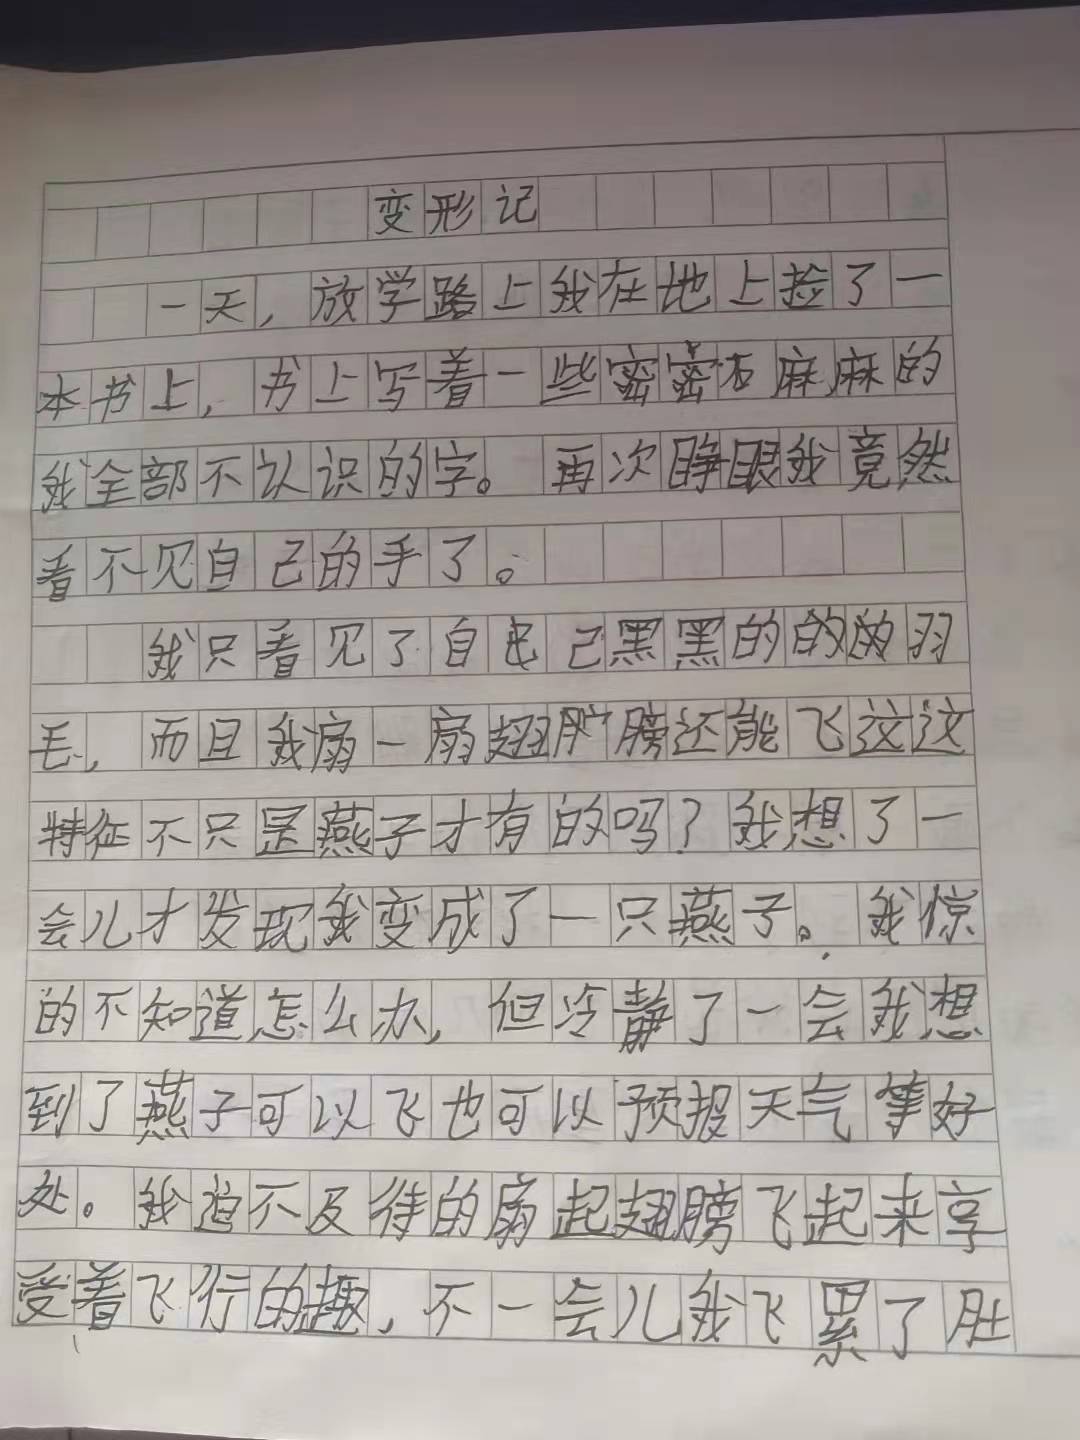 变形记
一天，放学路上我在地上捡了一
本书上，书上写着一些密密不麻麻的
我全部不认识的字。再次睁眼我竟然
看不见自己的手了。
我只看见了自己黑黑的的的羽
毛，而且我扇一扇翅膀还能飞这这
特征不只是燕子才有的吗？我想了一
会儿才发现我变成了一只燕子。我惊
的不知道怎么办，但冷静了一会我想
到了燕子可以飞也可以预报天气等好
处。我迫不及待的扇起翅膀飞起来享
受着飞行的趣，不一会儿我飞累了肚